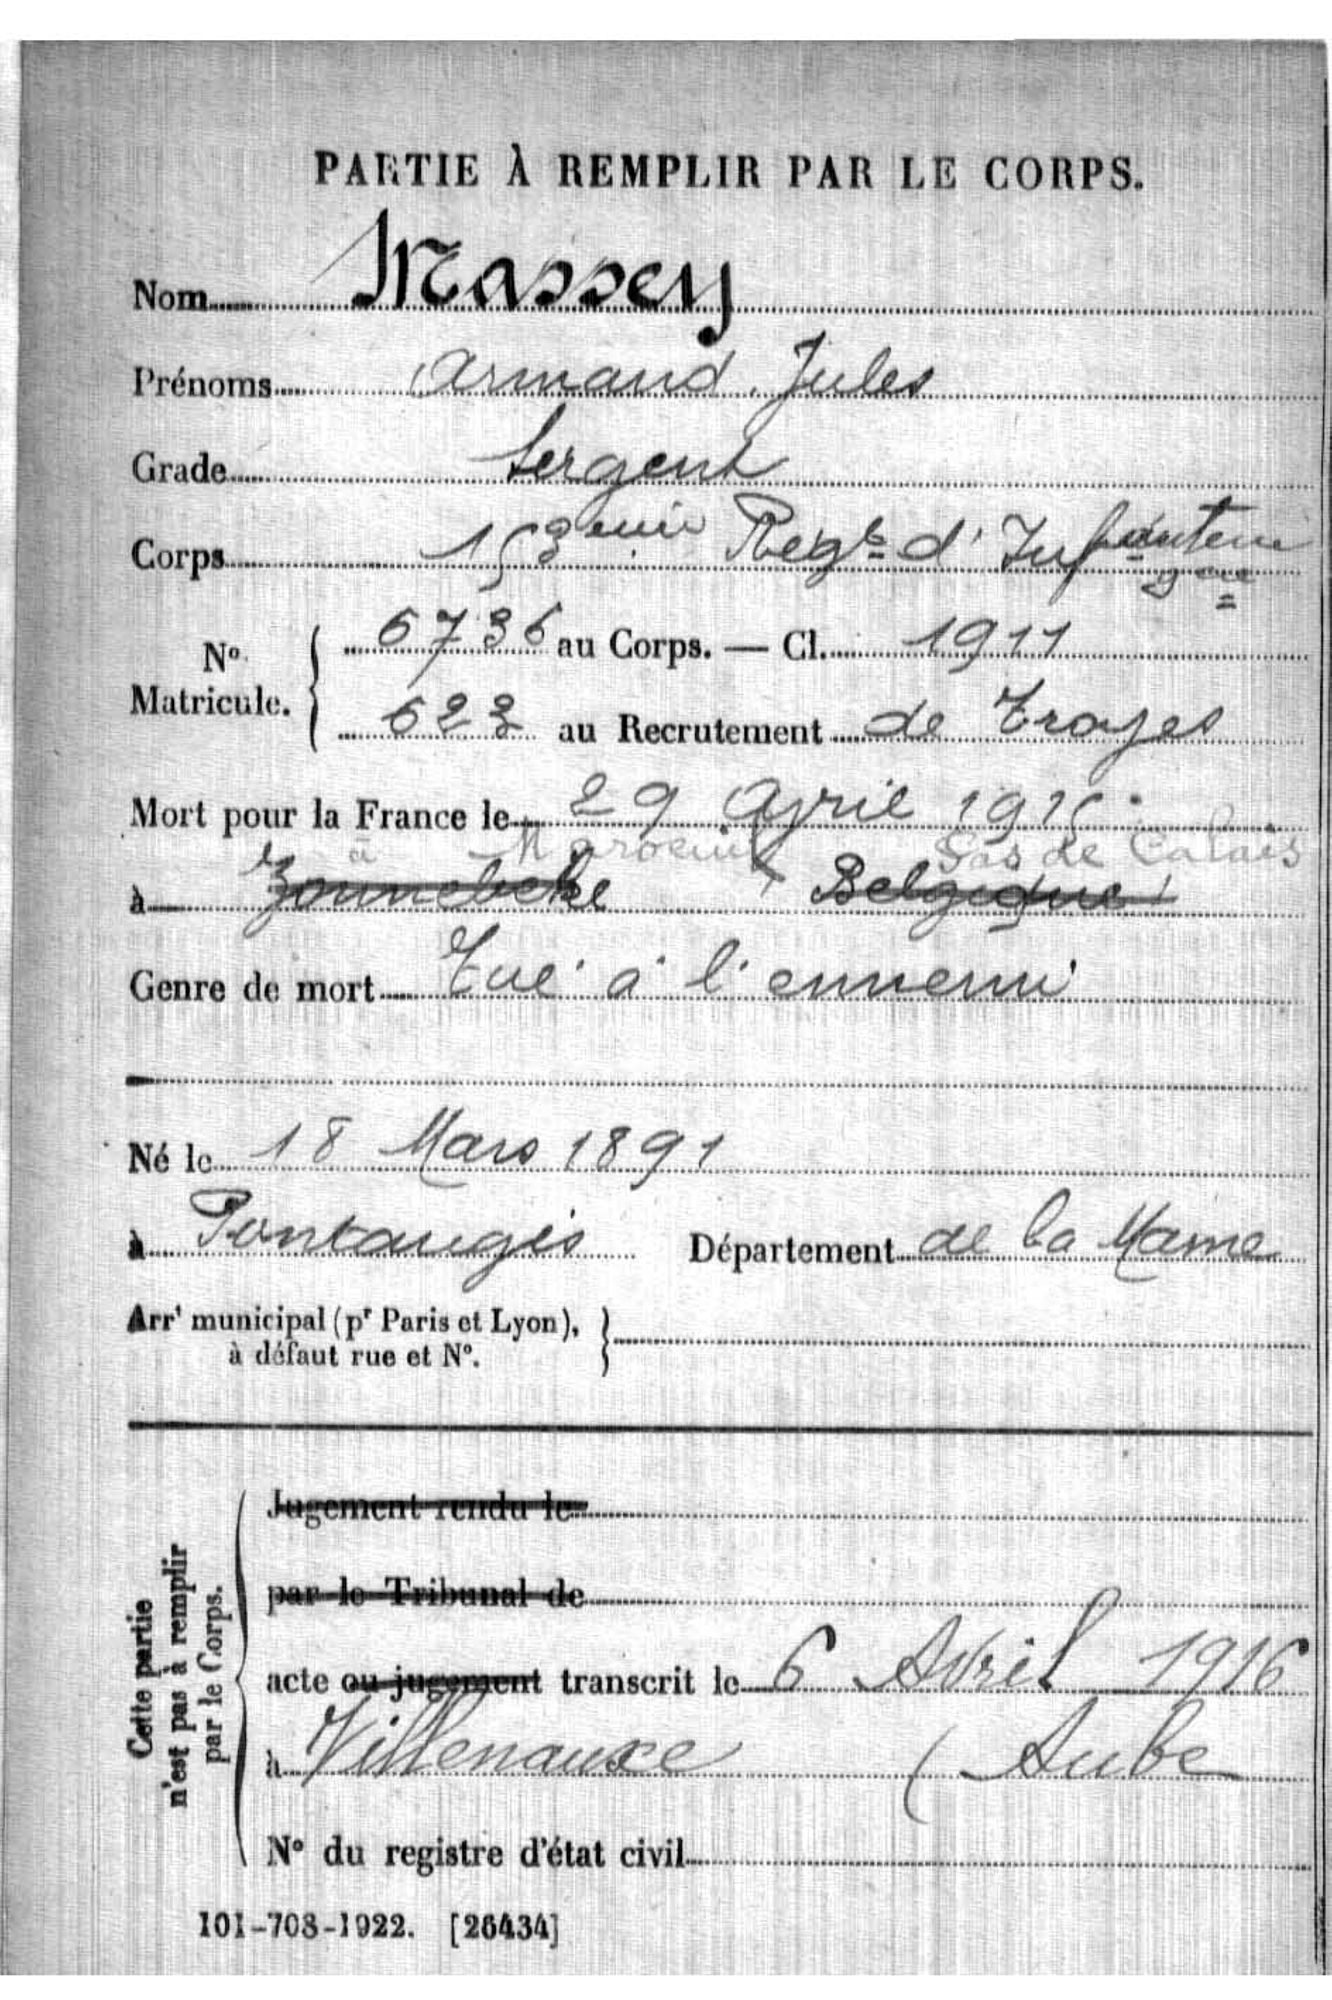 PARTIE À REMPLIR PAR LE CORPS.
Nom Massey
Prénoms Armand Jules
Grade Sergent
Corps 153eme Regt d'Infanterie
N° Matricule. 6736 au Corps. — Cl. 1911
623 au Recrutement de Troyes
Mort pour la France le 29 Avril 1915
à Maroeuil Pas de Calais
à Zonnebeke Belgique
Genre de mort Tué à l'ennemi
Né le 18 Mars 1891
à Pontangis Département de la Marne
Arrt municipal (pr Paris et Lyon),
à défaut rue et N°.
Cette partie
n'est pas à remplir
par le Corps.
Jugement rendu le
par le Tribunal de
acte ou jugement transcrit le 6 Avril 1916
à Villenauxe (Aube
N° du registre d'état civil
101-708-1922. [26434]